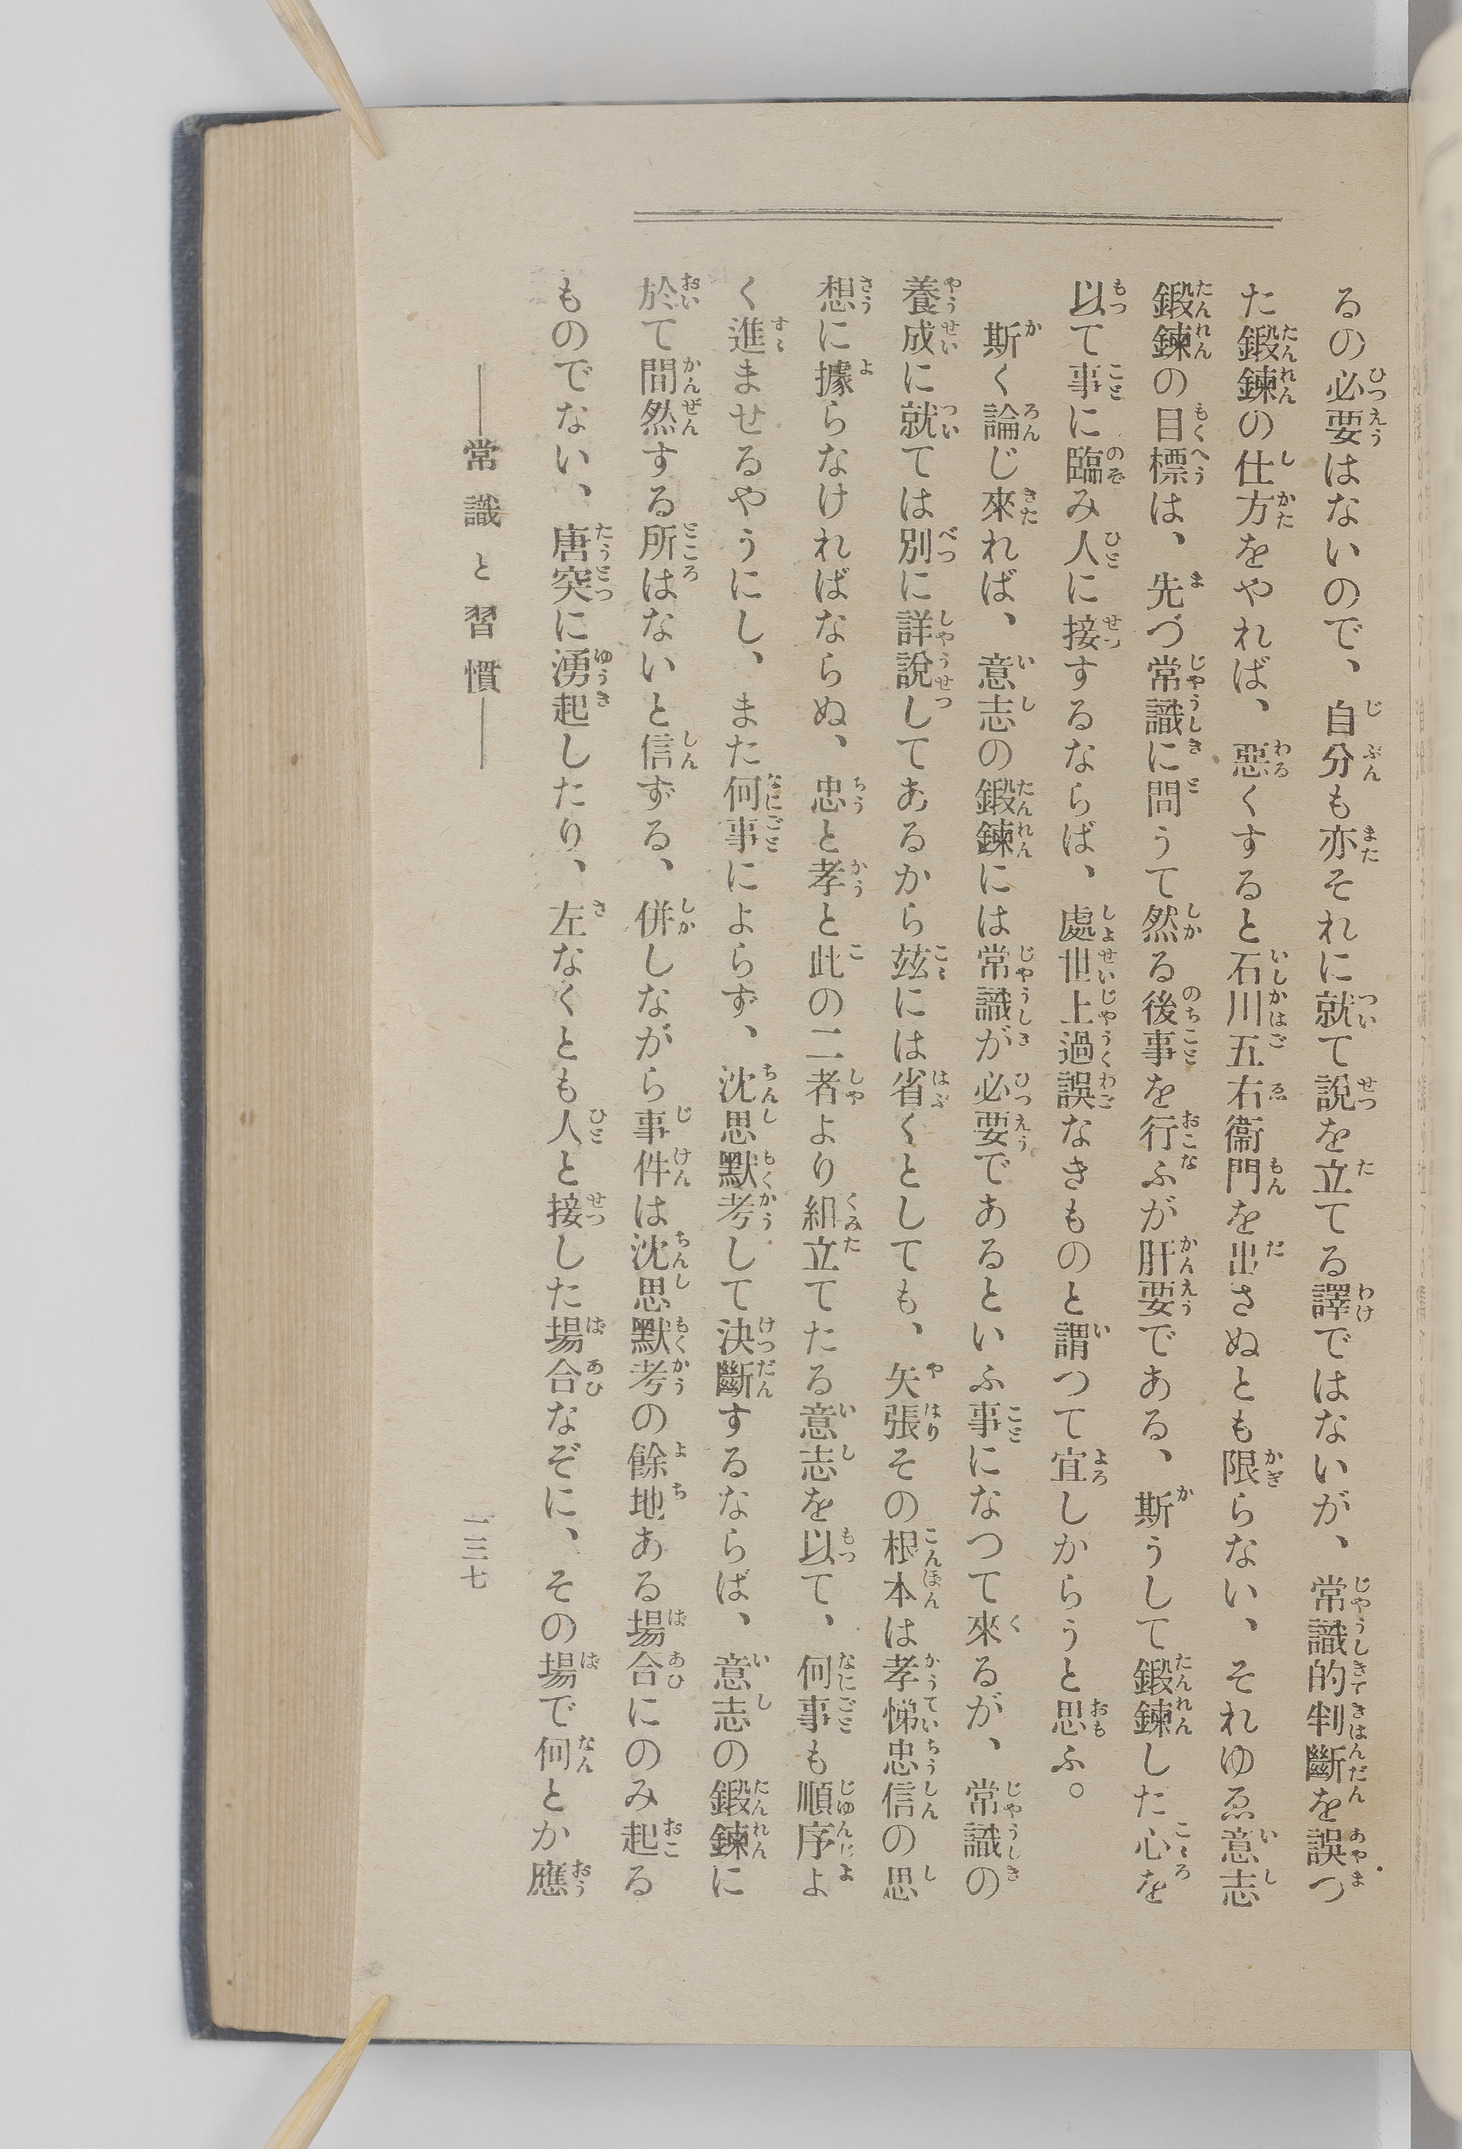 るの必要はないので、自分も亦それに就て說を立てる譯ではないが、常識的判斷を誤つ
た鍛鍊の仕方をやれば、惡くすると石川五右衞門を出さぬとも限らない、それゆゑ意志
鍛鍊の目標は、先づ常識に問うて然る後事を行ふが肝要である、斯うして鍛鍊した心を
以て事に臨み人に接するならば、處世上過誤なきものと謂つて宜しからうと思ふ。
斯く論じ來れば、意志の鍛鍊には常識が必要であるといふ事になつて來るが、常識の
養成に就いては別に詳說してあるから玆には省くとしても、矢張その根本は孝悌忠信の思
想に據らなければならぬ、忠と孝と此の二者より組立てたる意志を以て、何事も順序よ
く進ませるやうにし、また何事によらず、沈思默考して決斷するならば、意志の鍛鍊に
於て間然する所はないと信ずる、併しながら事件は沈思默考の餘地ある場合にのみ起る
ものでない、唐突に湧起したり、左なくとも人と接した場合なぞに、その場で何とか應
――常識と習慣――
二三七